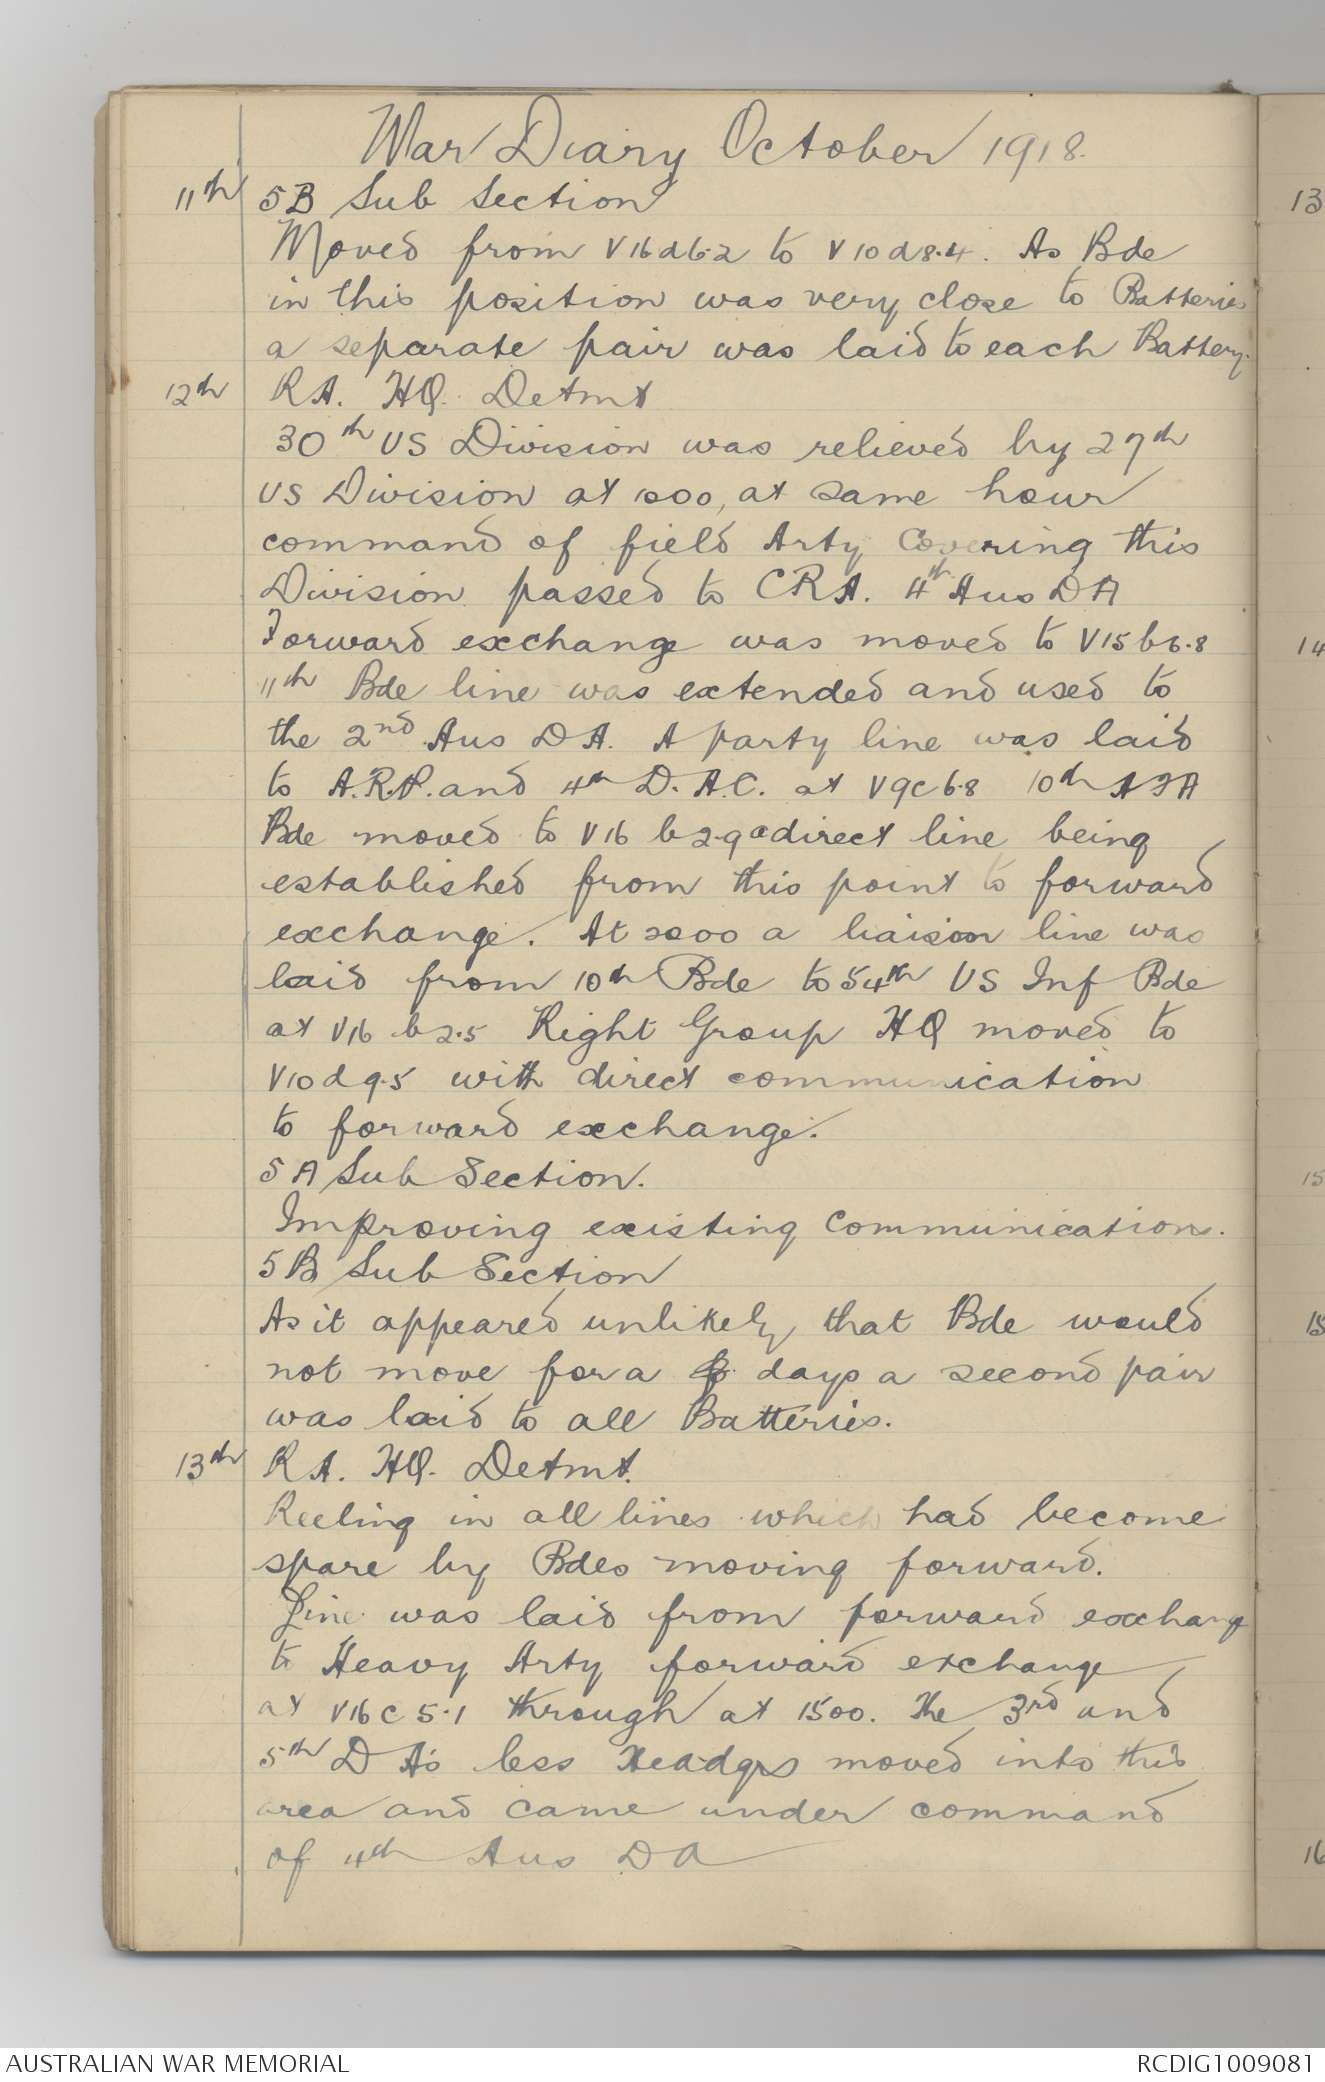 War Diary October 1918.
11th 5B Sub Section
Moved from V16d6.2 to V10d8.4. As Bde
in this position was very close to Batteries
a separate pair was laid to each Battery.
12th RA. HQ. Detmt
30th US Division was relieved by 27th
US Division at 1000, at same hour
command of field Arty Covering this
Division passed to CRA. 4th Aus DA
Forward exchange was moved to V15b6.8
11th Bde line was extended and used to
the 2nd Aus DA. A party line was laid
to A.R.P. and 4th D.A.C. at V9c6.8 10th AFA
Bde moved to V16 b2.9 a direct line being
established from this point to forward
exchange. At 2000 a liaison line was
laid from 10th Bde to 54th US Inf Bde
at V16 b2.5 Right Group HQ moved to
V10d9.5 with direct communication
to forward exchange.
5A Sub Section.
Improving existing Communications.
5B Sub Section
As it appeared unlikely that Bde would
not move for a days a second pair
was laid to all Batteries.
13th RA. HQ. Detmt.
Reeling in all lines which had become
spare by Bdes moving forward.
Line was laid from forward exchange
to Heavy Arty forward exchange
at V16c5.1 through at 1500. The 3rd and
5th DA's less Headqrs moved into this
area and came under command
of 4th Aus DA
13
14
15
15
16
AUSTRALIAN WAR MEMORIAL
RCDIG1009081